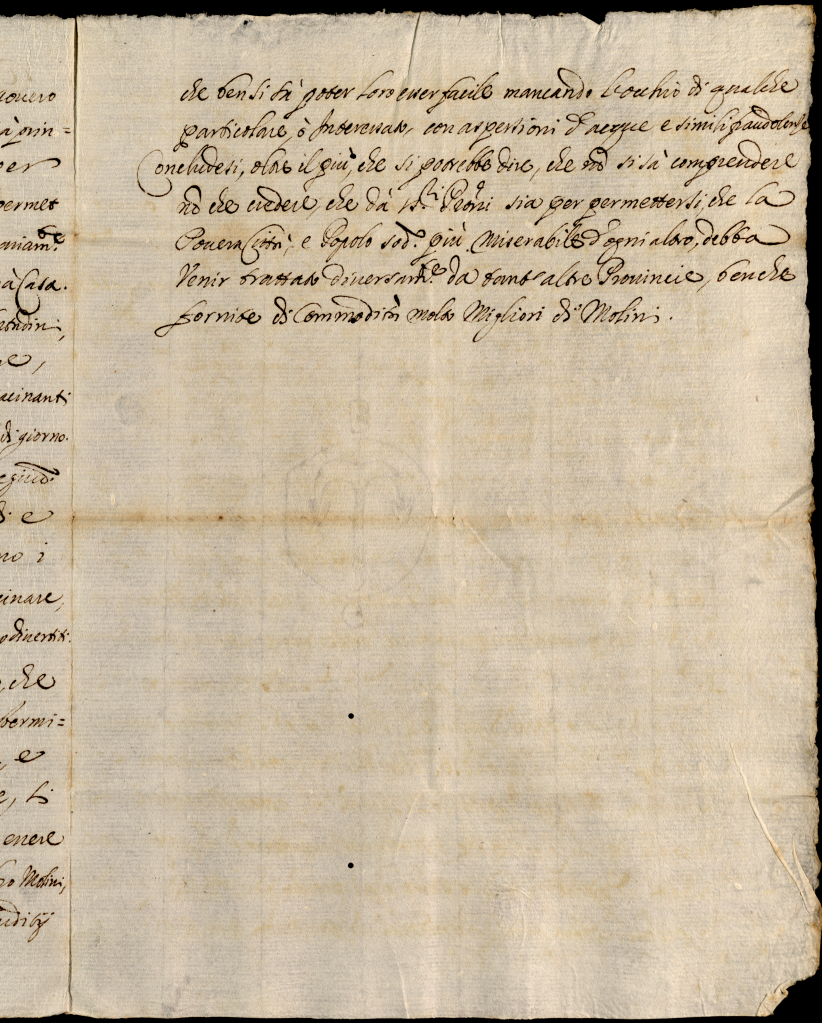 overo
à prin=
per
permet
ariam.te
à Casa.
,
e,
acinanti
di giorno.
e
no i
cinare,
divertiti.
, che
termi=
, e
e, li
enere
Molini,
che ben si sà poter loro esser facile mancando l'occhio di qualche
particolare, ò Interessato, con aspersioni d'acque e simili fraudolenze
Concludesi, oltre il più, che si potrebbe dire, che nõ si sà comprendere
nõ che credere, che dà Pñi sia per permettersi, che la
Povera Città, e Popolo sod.o più Miserabile d'ogni altro, debba
Venir trattato diversam.te da tant'altre Provincie, benche
fornite di Commodità molto Migliori di Molini.